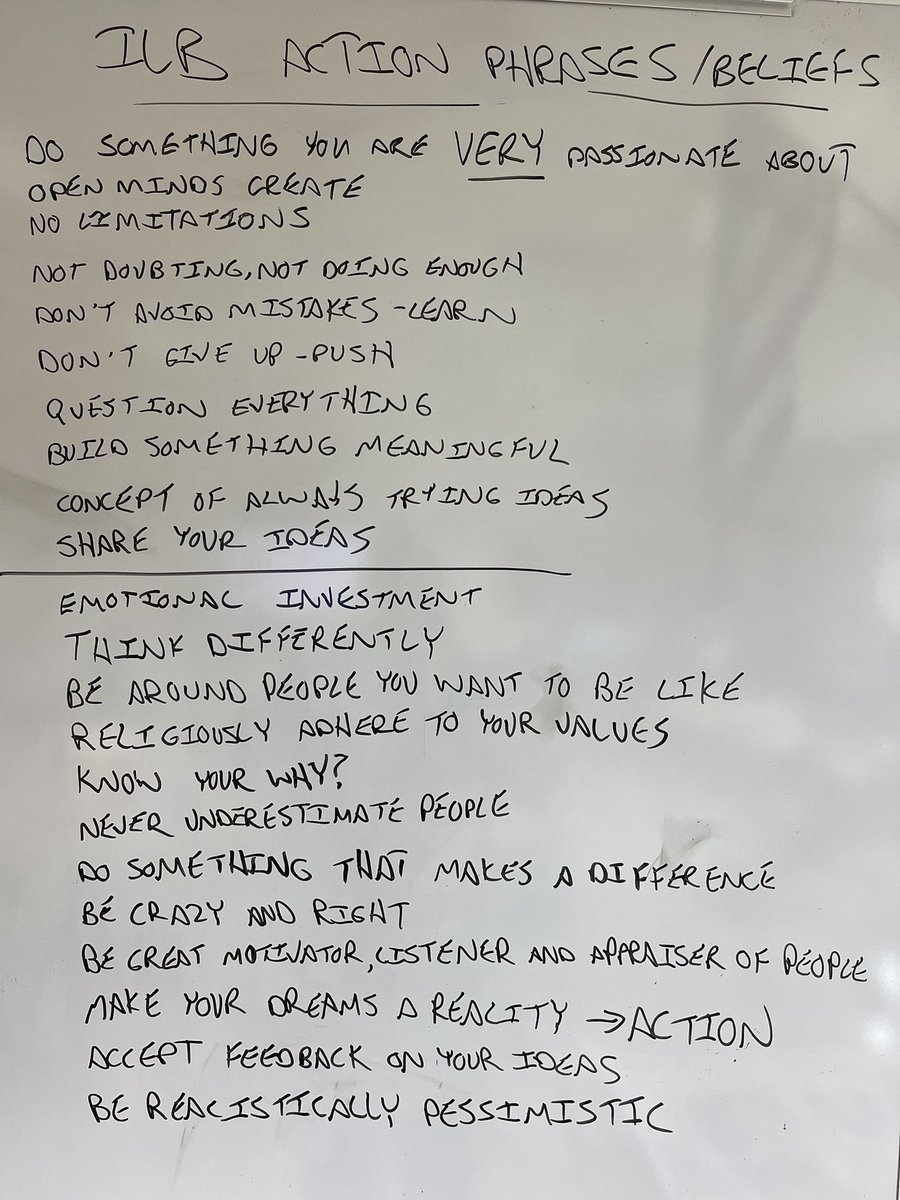 ILB ACTION PHRASES/BELIEFS
DO SOMETHING YOU ARE VERY PASSIONATE ABOUT
OPEN MINDS CREATE
NO LIMITATIONS
NOT DOUBTING, NOT DOING ENOUGH
DON'T AVOID MISTAKES - LEARN
DON'T GIVE UP - PUSH
QUESTION EVERYTHING
BUILD SOMETHING MEANINGFUL
CONCEPT OF ALWAYS TRYING IDEAS
SHARE YOUR IDEAS
EMOTIONAL INVESTMENT
THINK DIFFERENTLY
BE AROUND PEOPLE YOU WANT TO BE LIKE
RELIGIOUSLY ADHERE TO YOUR VALUES
KNOW YOUR WHY?
NEVER UNDERESTIMATE PEOPLE
DO SOMETHING THAT MAKES A DIFFERENCE
BE CRAZY AND RIGHT
BE GREAT MOTIVATOR, LISTENER AND APPRAISER OF PEOPLE
MAKE YOUR DREAMS A REALITY → ACTION
ACCEPT FEEDBACK ON YOUR IDEAS
BE REALISTICALLY PESSIMISTIC